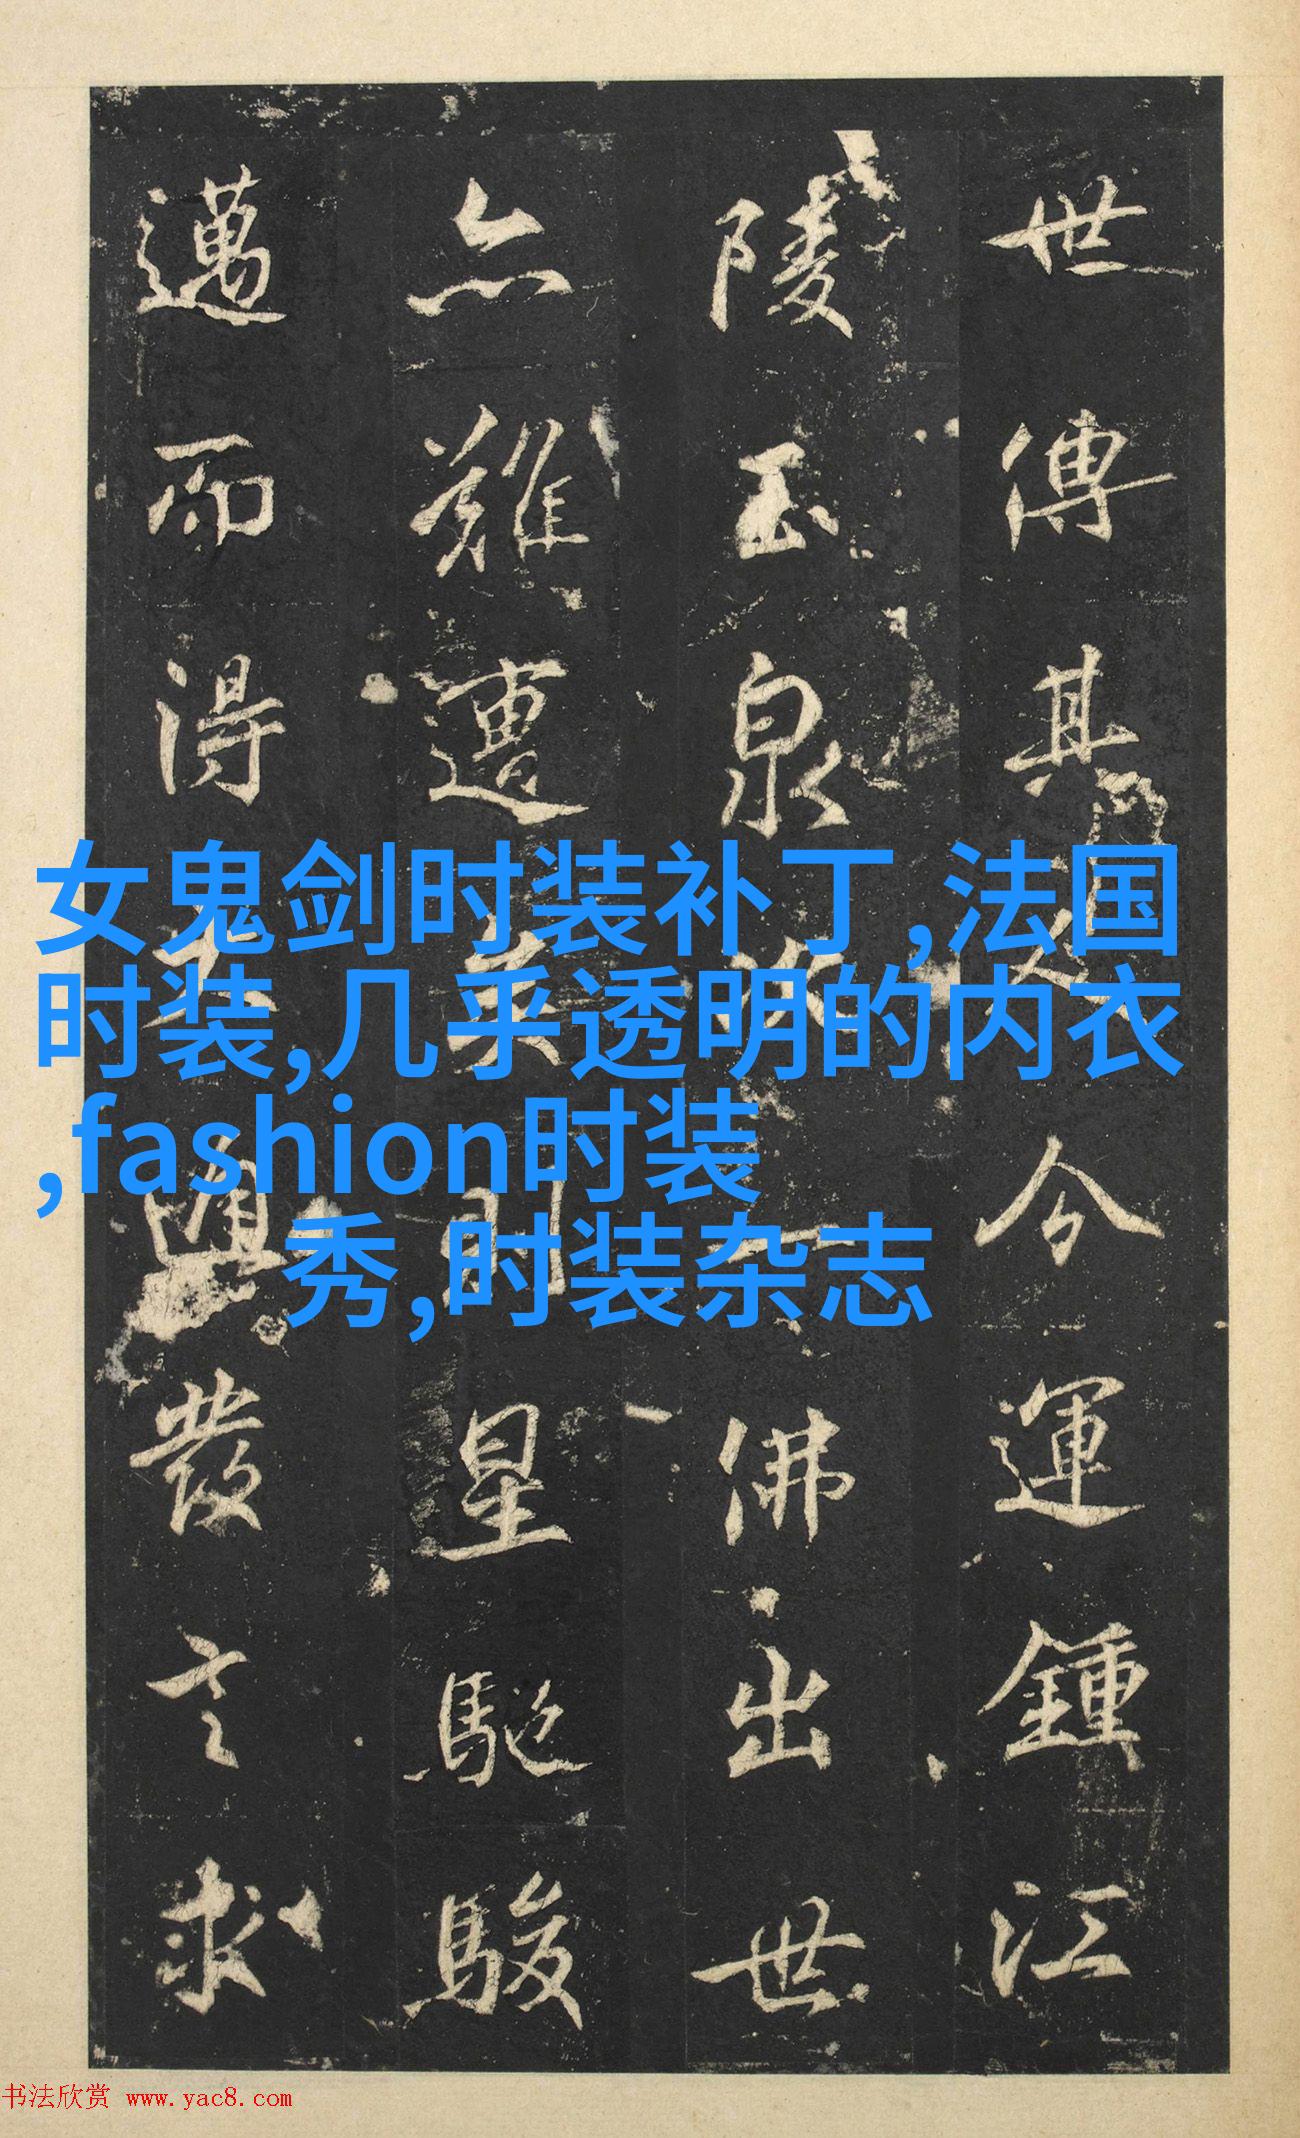 世傳其今運鍾江
陵玉泉次一佛出世
亦難遭矣則星馳駿
邁而得發言求
女鬼剑时装补丁,法国
时装,几乎透明的内衣
,fashion时装
秀,时装杂志
书法欣赏 www.yac8.com